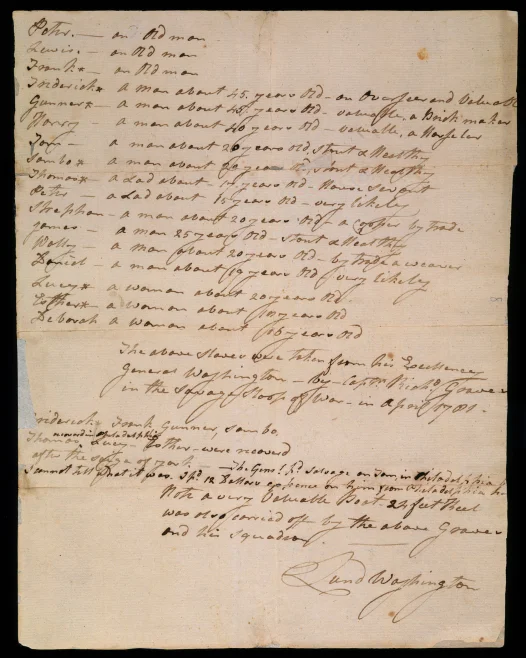 Peter. — an Old man
Lewis. — an Old man
Frank* — an Old man
Frederick* a man about 45 years Old - an Overseer and Valuable
Gunner* — a man about 45 years Old - valuable, a Brick maker
Harry — a man about 40 years Old - valuable, a Horseler
Tom — a man about 20 years Old, stout & Healthy
Sambo* a man about 20 years Old, stout & Healthy
Thomas* a Lad about 17 years Old - House Servant
Peter — a Lad about 15 years Old - very likely
Stephen — a man about 20 years Old - a Cooper by trade
James — a man 25 years Old - stout & Healthy
Wally — a man about 20 years Old - by trade a weaver
Daniel — a man about 19 years Old very likely
Lucy* a woman about 20 years Old
Esther* a woman about 18 years Old
Deborah a woman about 16 years Old
The above Slaves were taken from his Excellency
General Washington — By Captn Richd Graves
in the Savage Sloop of War — in April 1781.
Frederick, Frank Gunner, Sambo,
recovered in Philadelphia
Thomas Lucy Esther - were recovd
after the siege of york. — The Genl pd Salvage on Tom in Philadelphia
I cannot tell what it was. Pd 12 Dollars expence on him from Philadelphia
Note a very Valuable Boat. 24 feet Keel
was also carried off by the above Graves
and his Squadron.
Lund Washington